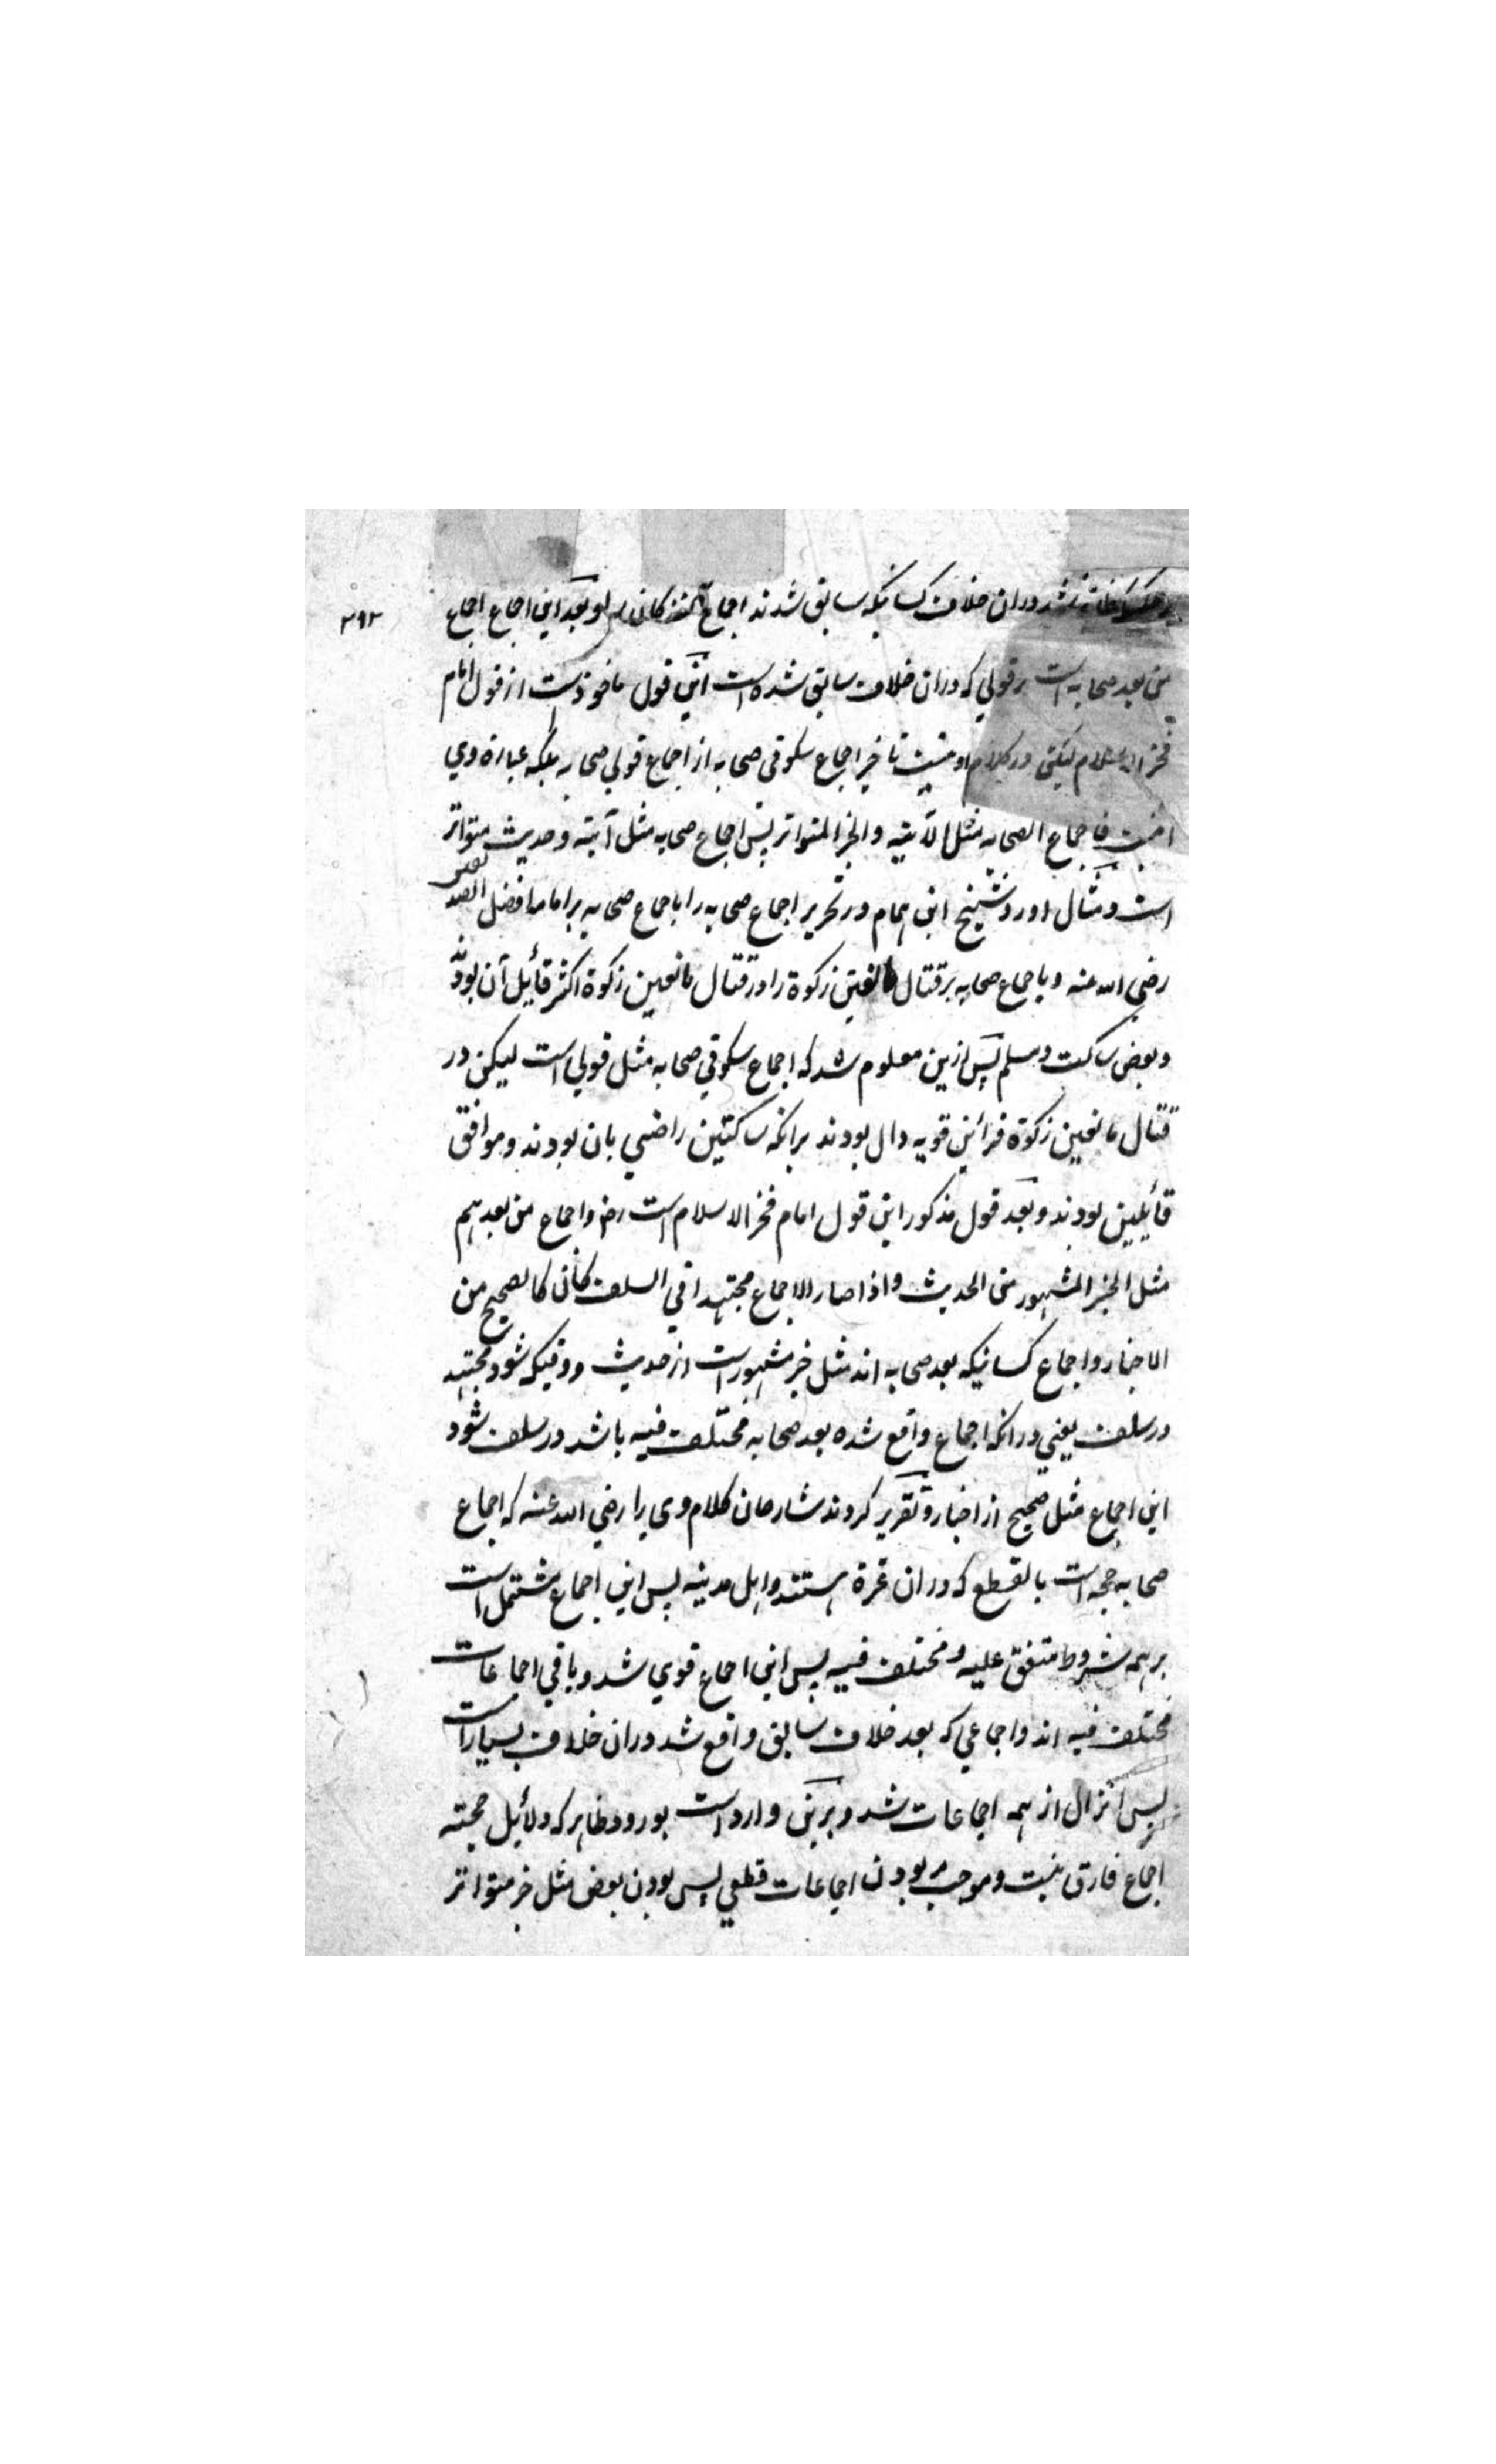 نشد دران خلاف کسانیکه سابق شدند اجماع او بعد این اجماع اجماع
۳۹۲
من بعد صحابه است بر قولی که دران خلاف سابق شده است این قول ماخوذست از قول امام
فخر الاسلام لیکن در کلام او نیست تاخیر اجماع سکوتی صحابه از اجماع قولی صحابه بلکه عبارة وی
اینست فاجماع الصحابه مثل الآیته والخبر المتواتر پس اجماع صحابه مثل آیته و حدیث متواتر
است و مثال اورد شیخ ابن همام در تحریر اجماع صحابه را باجماع صحابه بر امامة افضل الصدیقین
رضی الله عنه و باجماع صحابه بر قتال مانعین زکوة را و در قتال مانعین زکوة اکثر قائل آن بودند
و بعض ساکت و مسلم پس ازین معلوم شد که اجماع سکوتی صحابه مثل قولی است لیکن در
قتال مانعین زکوة قرائن قویه دال بودند برانکه ساکتین راضی بان بودند و موافق
قائلین بودند و بعد قول مذکور این قول امام فخر الاسلام است رض و اجماع من بعدهم
مثل الخبر المشهور من الحدیث و اذا صار الاجماع مجتهدا فی السلف کان کالصحیح من
الاخبار و اجماع کسانیکه بعد صحابه اند مثل خبر مشهور است از حدیث و وقتیکه شود مجتهد
در سلف یعنی درانکه اجماع واقع شده بعد صحابه مختلف فیه باشد در سلف شود
این اجماع مثل صحیح از اخبار و تقریر کردند شارحان کلام وی را رضی الله عنه که اجماع
صحابه حجه است بالقطع که دران عترة هستند و اهل مدینه پس این اجماع مشتمل است
بر همه شروط متفق علیه و مختلف فیه پس این اجماع قوی شد و باقی اجماعات
مختلف فیه اند و اجماعی که بعد خلاف سابق واقع شد دران خلاف بسیار است
پس انزال از همه اجماعات شد و برین وارد است بورود ظاهر که دلائل حجته
اجماع فارق نیست و موجب بودن اجماعات قطعی پس بودن بعض مثل خبر متواتر